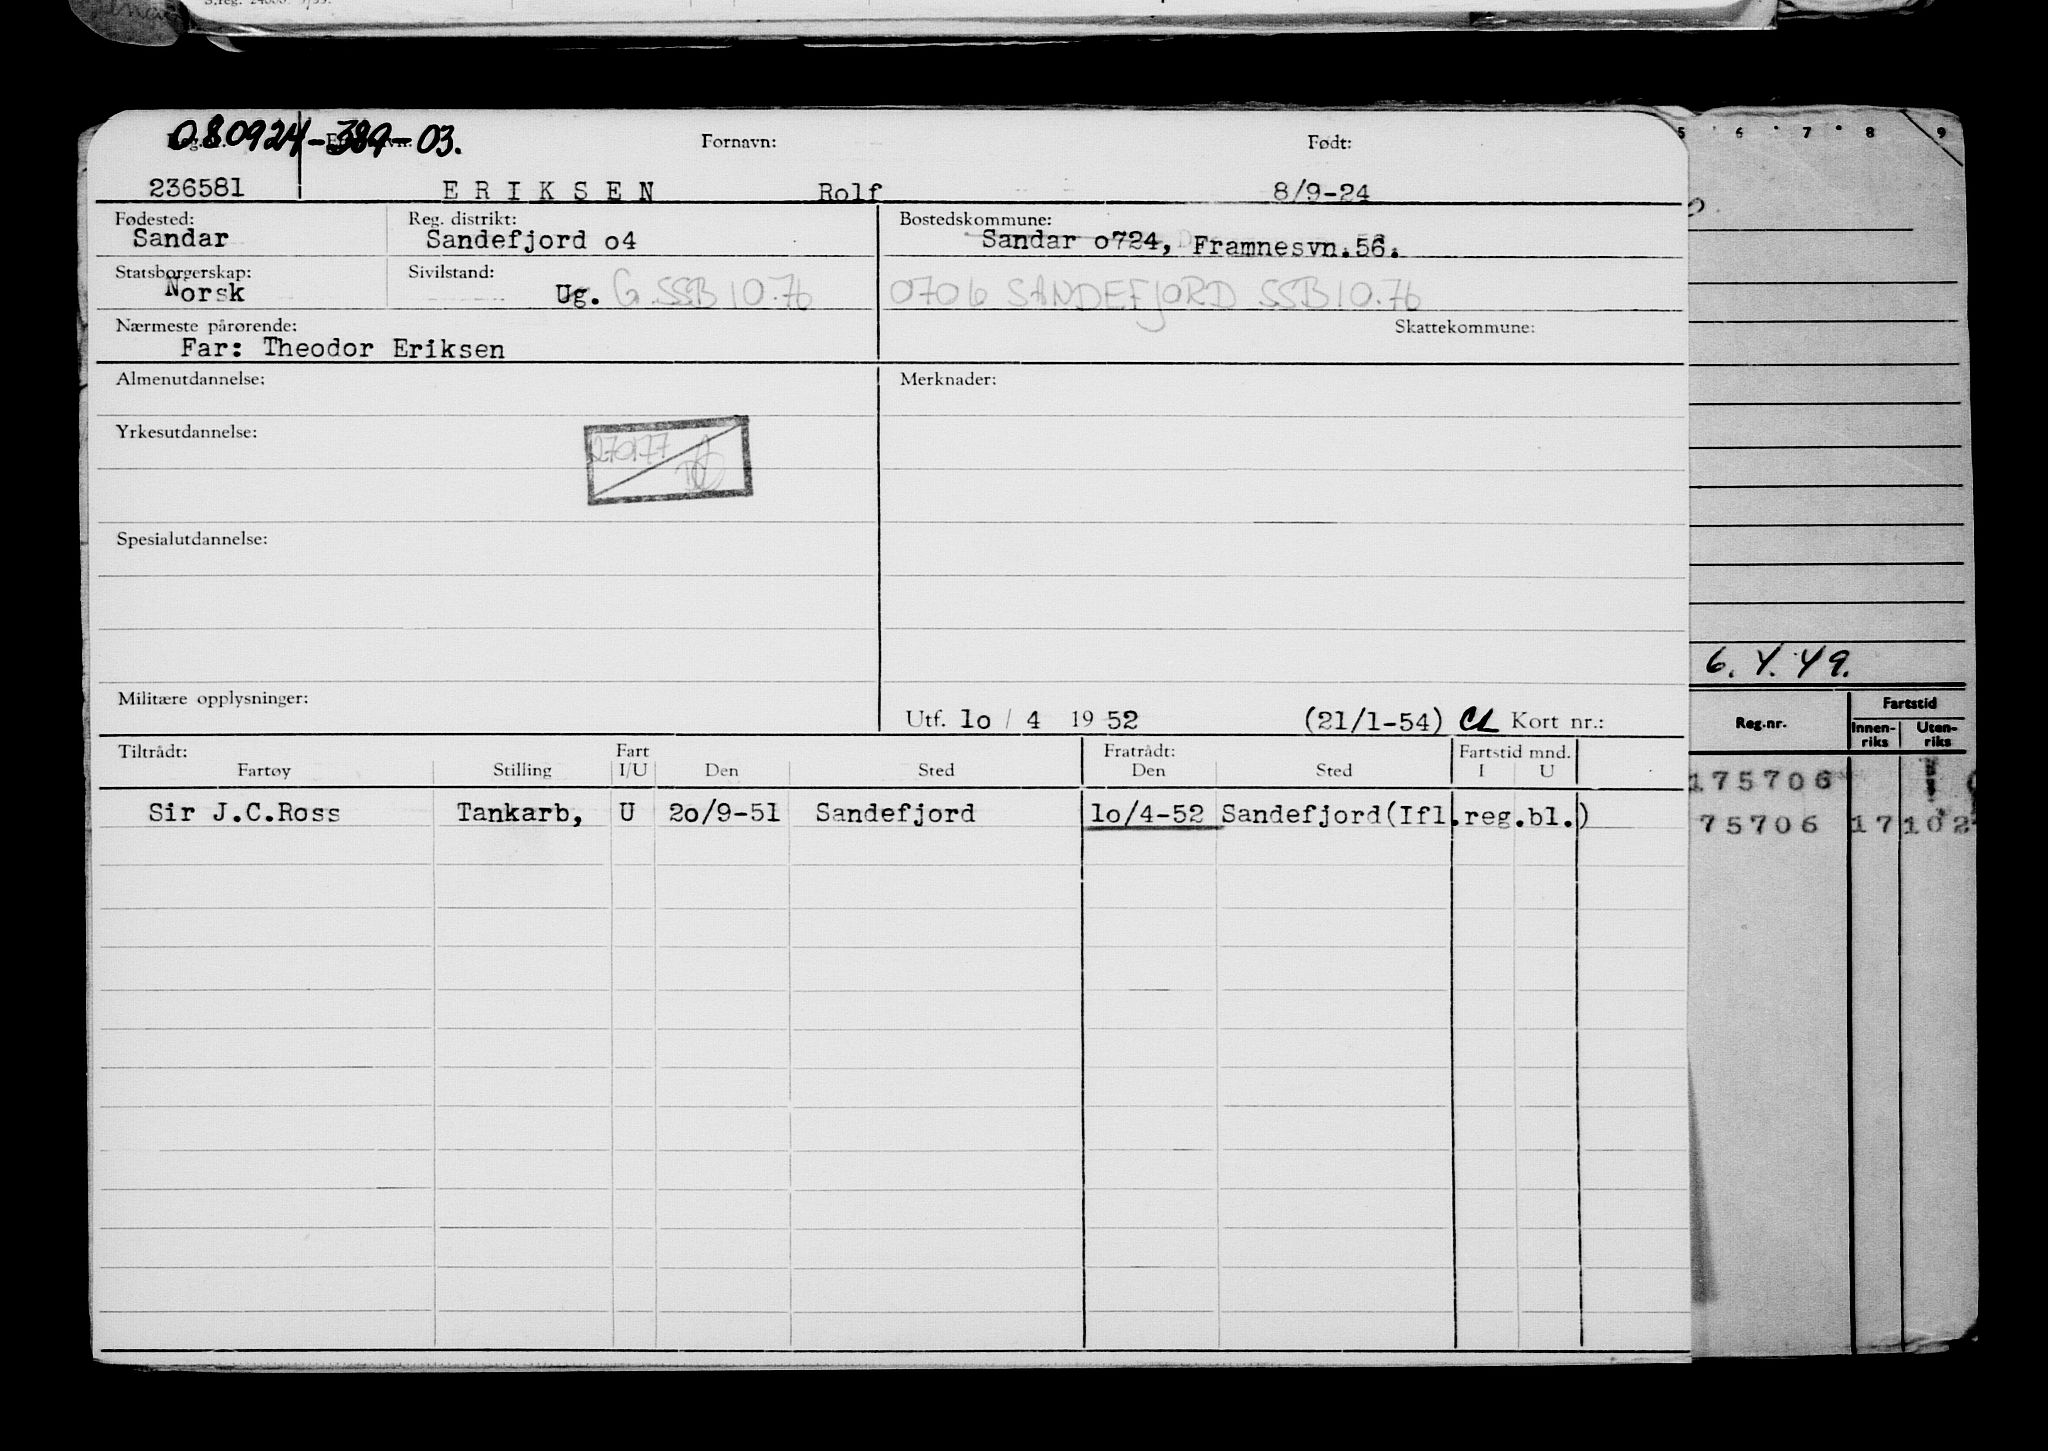 S.reg. 24000.
080924-389-03.
Fornavn: Født:
236581 ERIKSEN Rolf 8/9-24
Fødested: Reg. distrikt: Bostedskommune:
Sandar Sandefjord o4 Sandar o724, Framnesvn.56.
Statsborgerskap: Sivilstand:
Norsk Ug. G SSB 10.76 0706 SANDEFJORD SSB 10.76
Nærmeste pårørende: Skattekommune:
Far: Theodor Eriksen
Almenutdannelse: Merknader:
Yrkesutdannelse:
270177
Spesialutdannelse:
Militære opplysninger:
Utf. lo / 4 19 52 (21/1-54) CL Kort nr.:
Tiltrådt: Fart Fratrådt: Fartstid mnd.
Fartøy Stilling I/U Den Sted Den Sted I U
Sir J.C.Ross Tankarb, U 2o/9-51 Sandefjord lo/4-52 Sandefjord(Ifl.reg.bl.)
5 6 7 8 9
6.4.49.
Reg.nr. Fartstid
Innen-riks Uten-riks
175706
75706 17 102